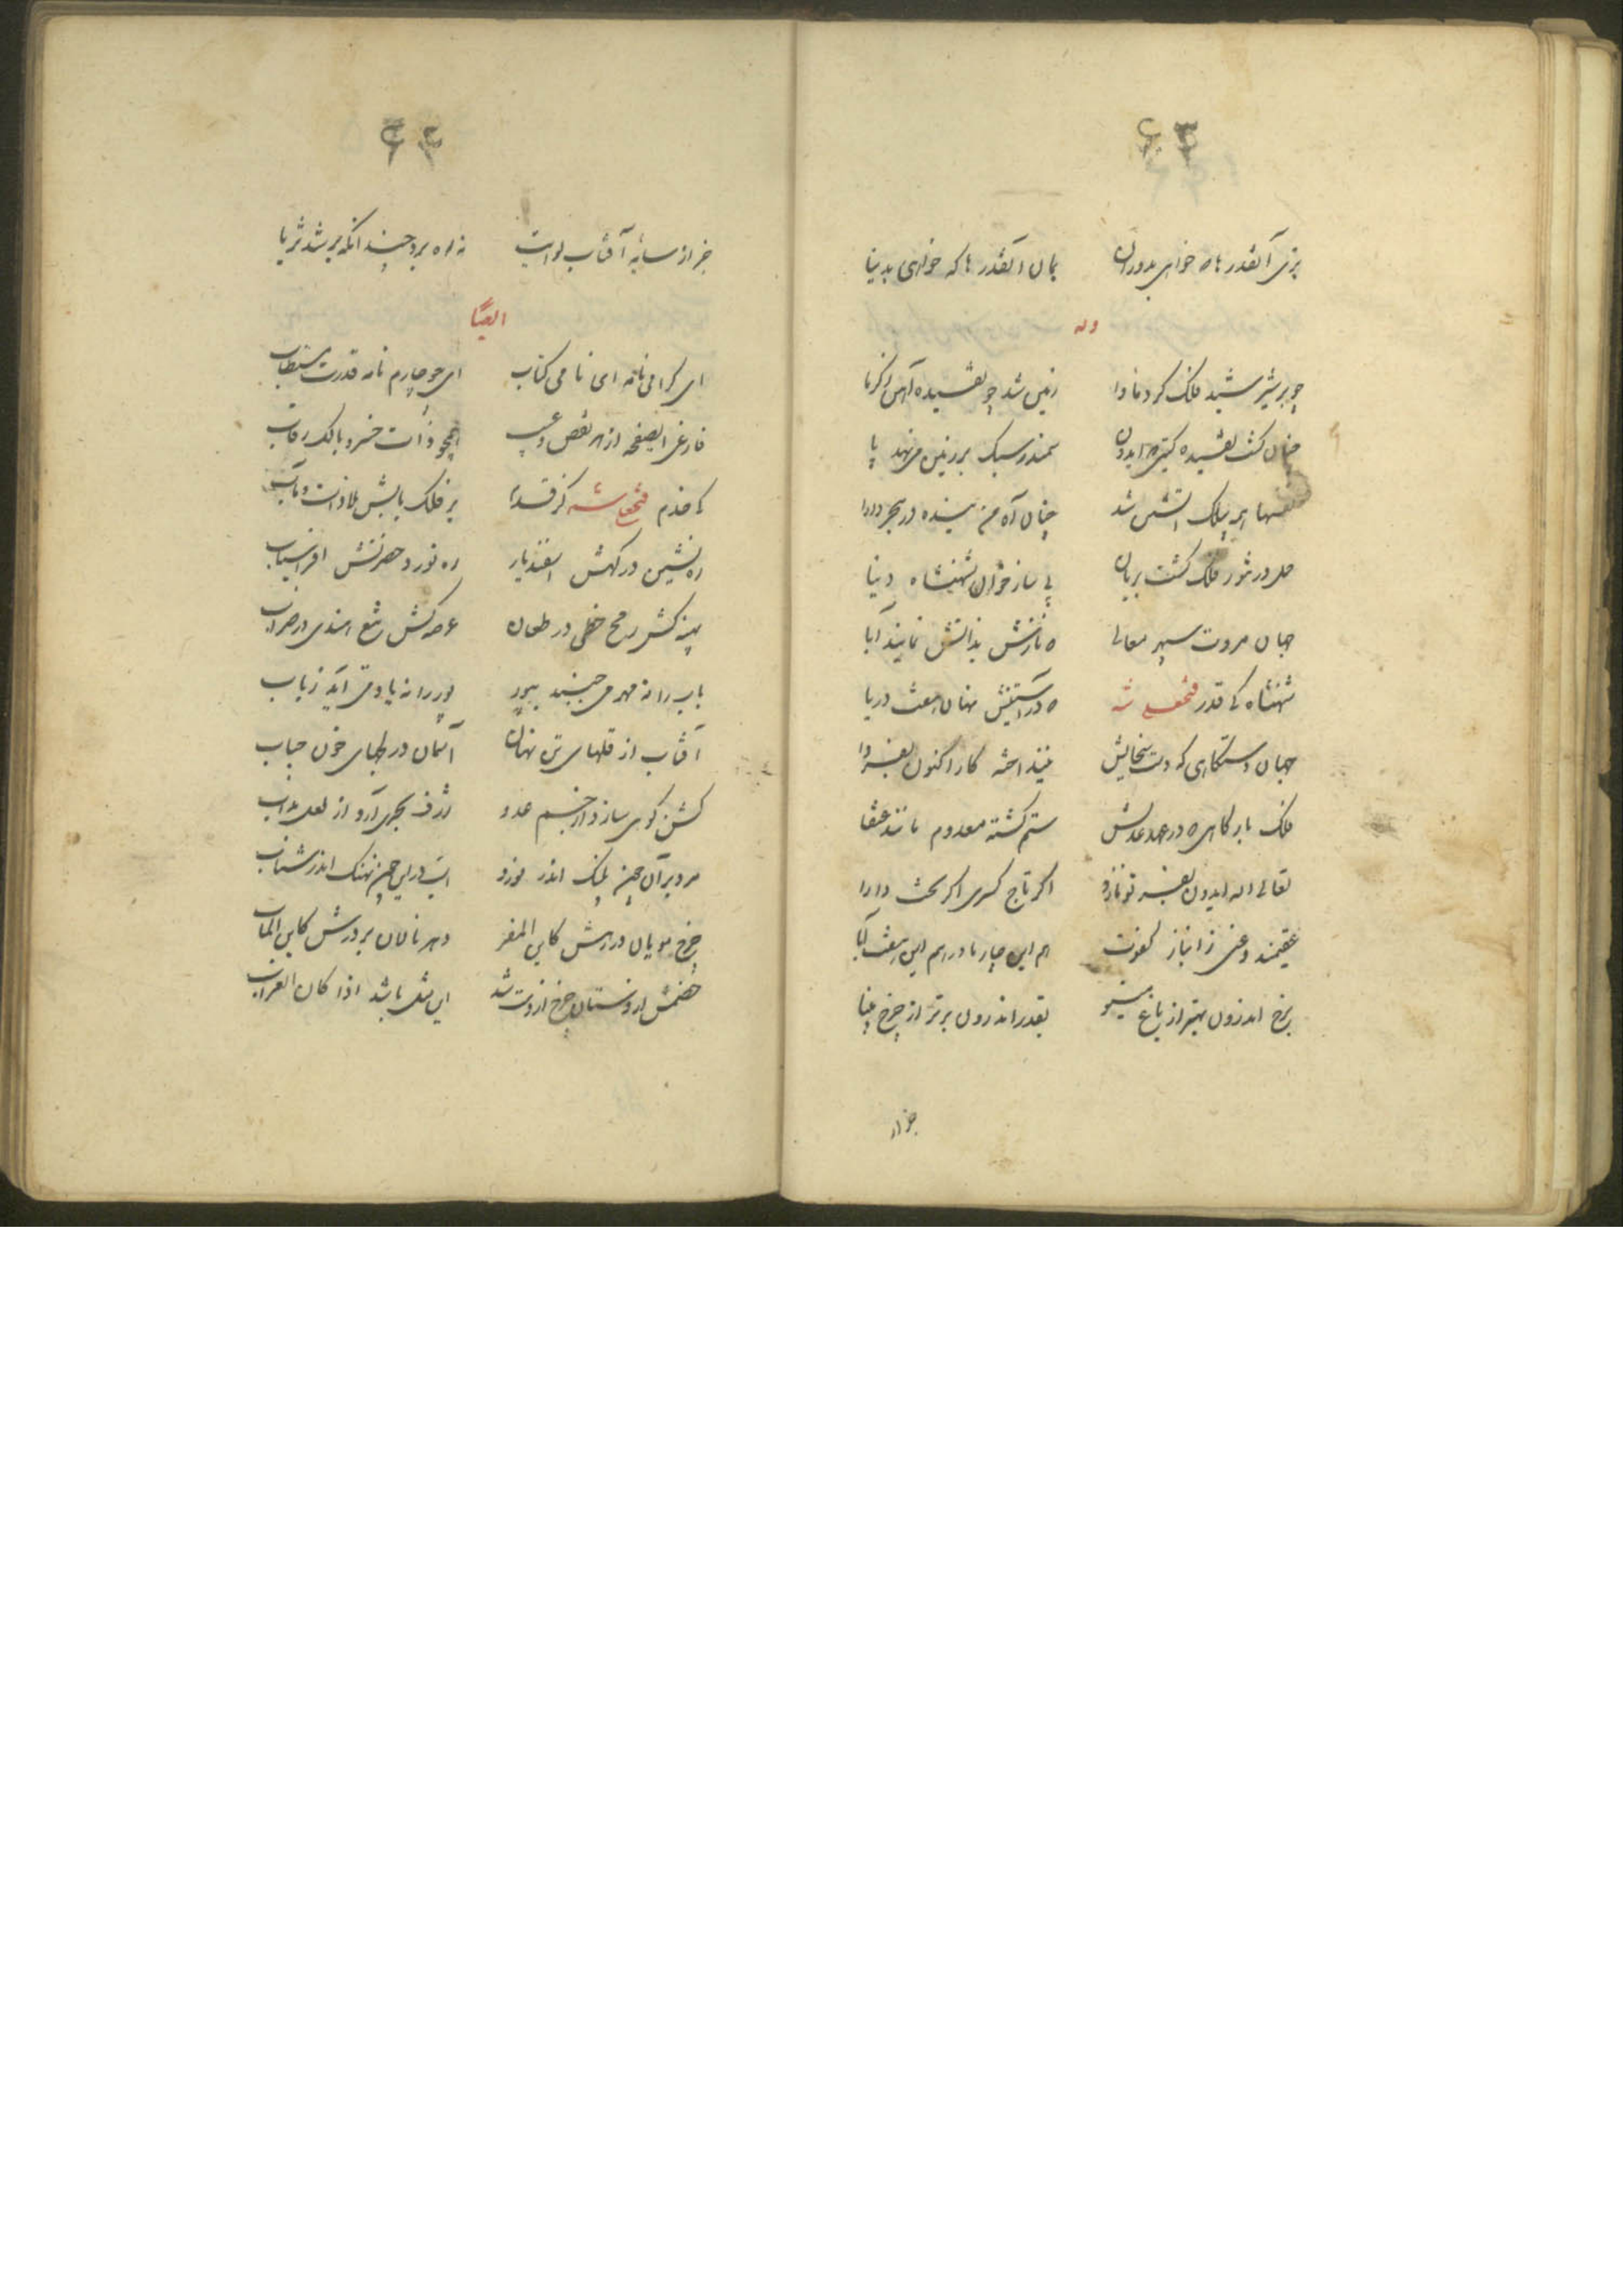 ۶۳
بزی آنقدرها که خواهی بدوران بمان آنقدرها که خواهی بدنیا
وله
چو بر شیر شید فلک کرد ماوا زمین شد چو تفسیده آهن ز کرما
چنان کشت تفسیده کیتی که ایدون سمندر سبک بر زمین می نهد پا
همه پیک آتشین شد چنان آه من سینده در هجر دارا
حمل در تنور فلک کشت بریان پی ساز خوان شهنشاه دنیا
جهان مروت سپهر معالی که نازش بذاتش نمایند آبا
شهنشاه کی قدر فتحعلی شه که در آستینش نهان هفت دریا
جهان دستکاهی که دست سخایش کار اکنون بفردا
فلک بارکاهی که در عهد عدلش ستم کشته معدوم مانند عنقا
تعالی اله ایدون بفر تو نازد اگر تاج کسری اگر تخت دارا
عقیمند وعنی ز انباز کفوت هم این چار مادر هم این هفت آبا
برخ اندرون بهتر از باغ مینو بقدر اندرون برتر از چرخ مینا
جز از
۶۴
جز از سایه آفتاب لوایت نه راه برد چندانکه بر شد ثریا
ایضا
ای کرامی نامه ای نامی کتاب ای چو چارم نامه قدرت مستطاب
فارغی ایصفحه از هر نقص و عیب همچو ذات خسرو مالک رقاب
کی خدم فتحعلی شه کز قدر بر فلک بابش ملاذ است و مآب
ره نشین درکهش اسفندیار ره نورد حضرتش افراسیاب
پهنه کش رمح خطی در طعان عرصه کش تیغ هندی در ضراب
باب را نه مهر می جنبد بپور پور را نه یاد می آید ز باب
آفتاب از قلهای تن نهان آسمان در لجهای خون حباب
کشن کوهی سازد از جسم عدو ژرف بحری آرد از لعل مذاب
مرد بر آن چون پلنک اندر نورد اسب در این چون نهنک اندر شتاب
چرخ مویان در رهش کاین المفر دهر نالان بر درش کاین المآب
خصمش ار دستان چرخ از دست شد این مثل باشد اذا کان الغراب